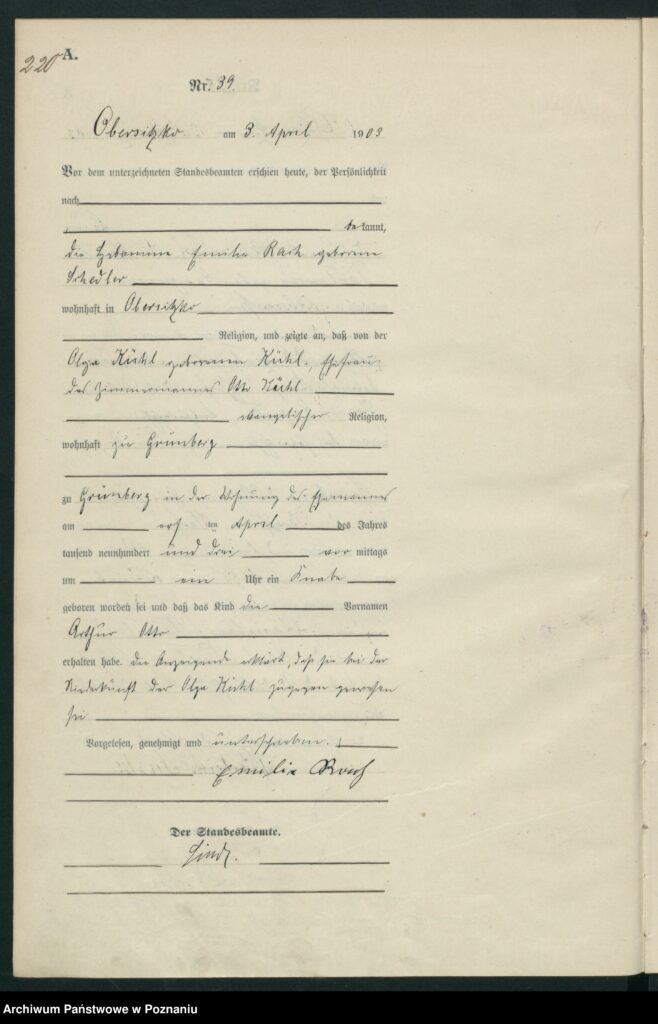 220
A.
Nr. 39.
Obersitzko am 3. April 1903
Vor dem unterzeichneten Standesbeamten erschien heute, der Persönlichkeit
nach
bekannt,
die Hebamme Emilie geborene
Schedler
wohnhaft in Obersitzko
Religion, und zeigte an, daß von der
Olga geborenen Ehefrau
des Zimmermannes Otto
evangelischer Religion,
wohnhaft zu Grünberg
zu Grünberg in der Wohnung des Ehemannes
am ten April des Jahres
tausend neunhundert und drei vormittags
um ein Uhr ein Knabe
geboren worden sei und daß das Kind die Vornamen
Arthur Otto
erhalten habe. Die Anzeigende erklärt, daß sie bei der
Niederkunft der Olga zugegen gewesen
sei
Vorgelesen, genehmigt und unterschrieben.
Emilie
Der Standesbeamte.
Archiwum Państwowe w Poznaniu